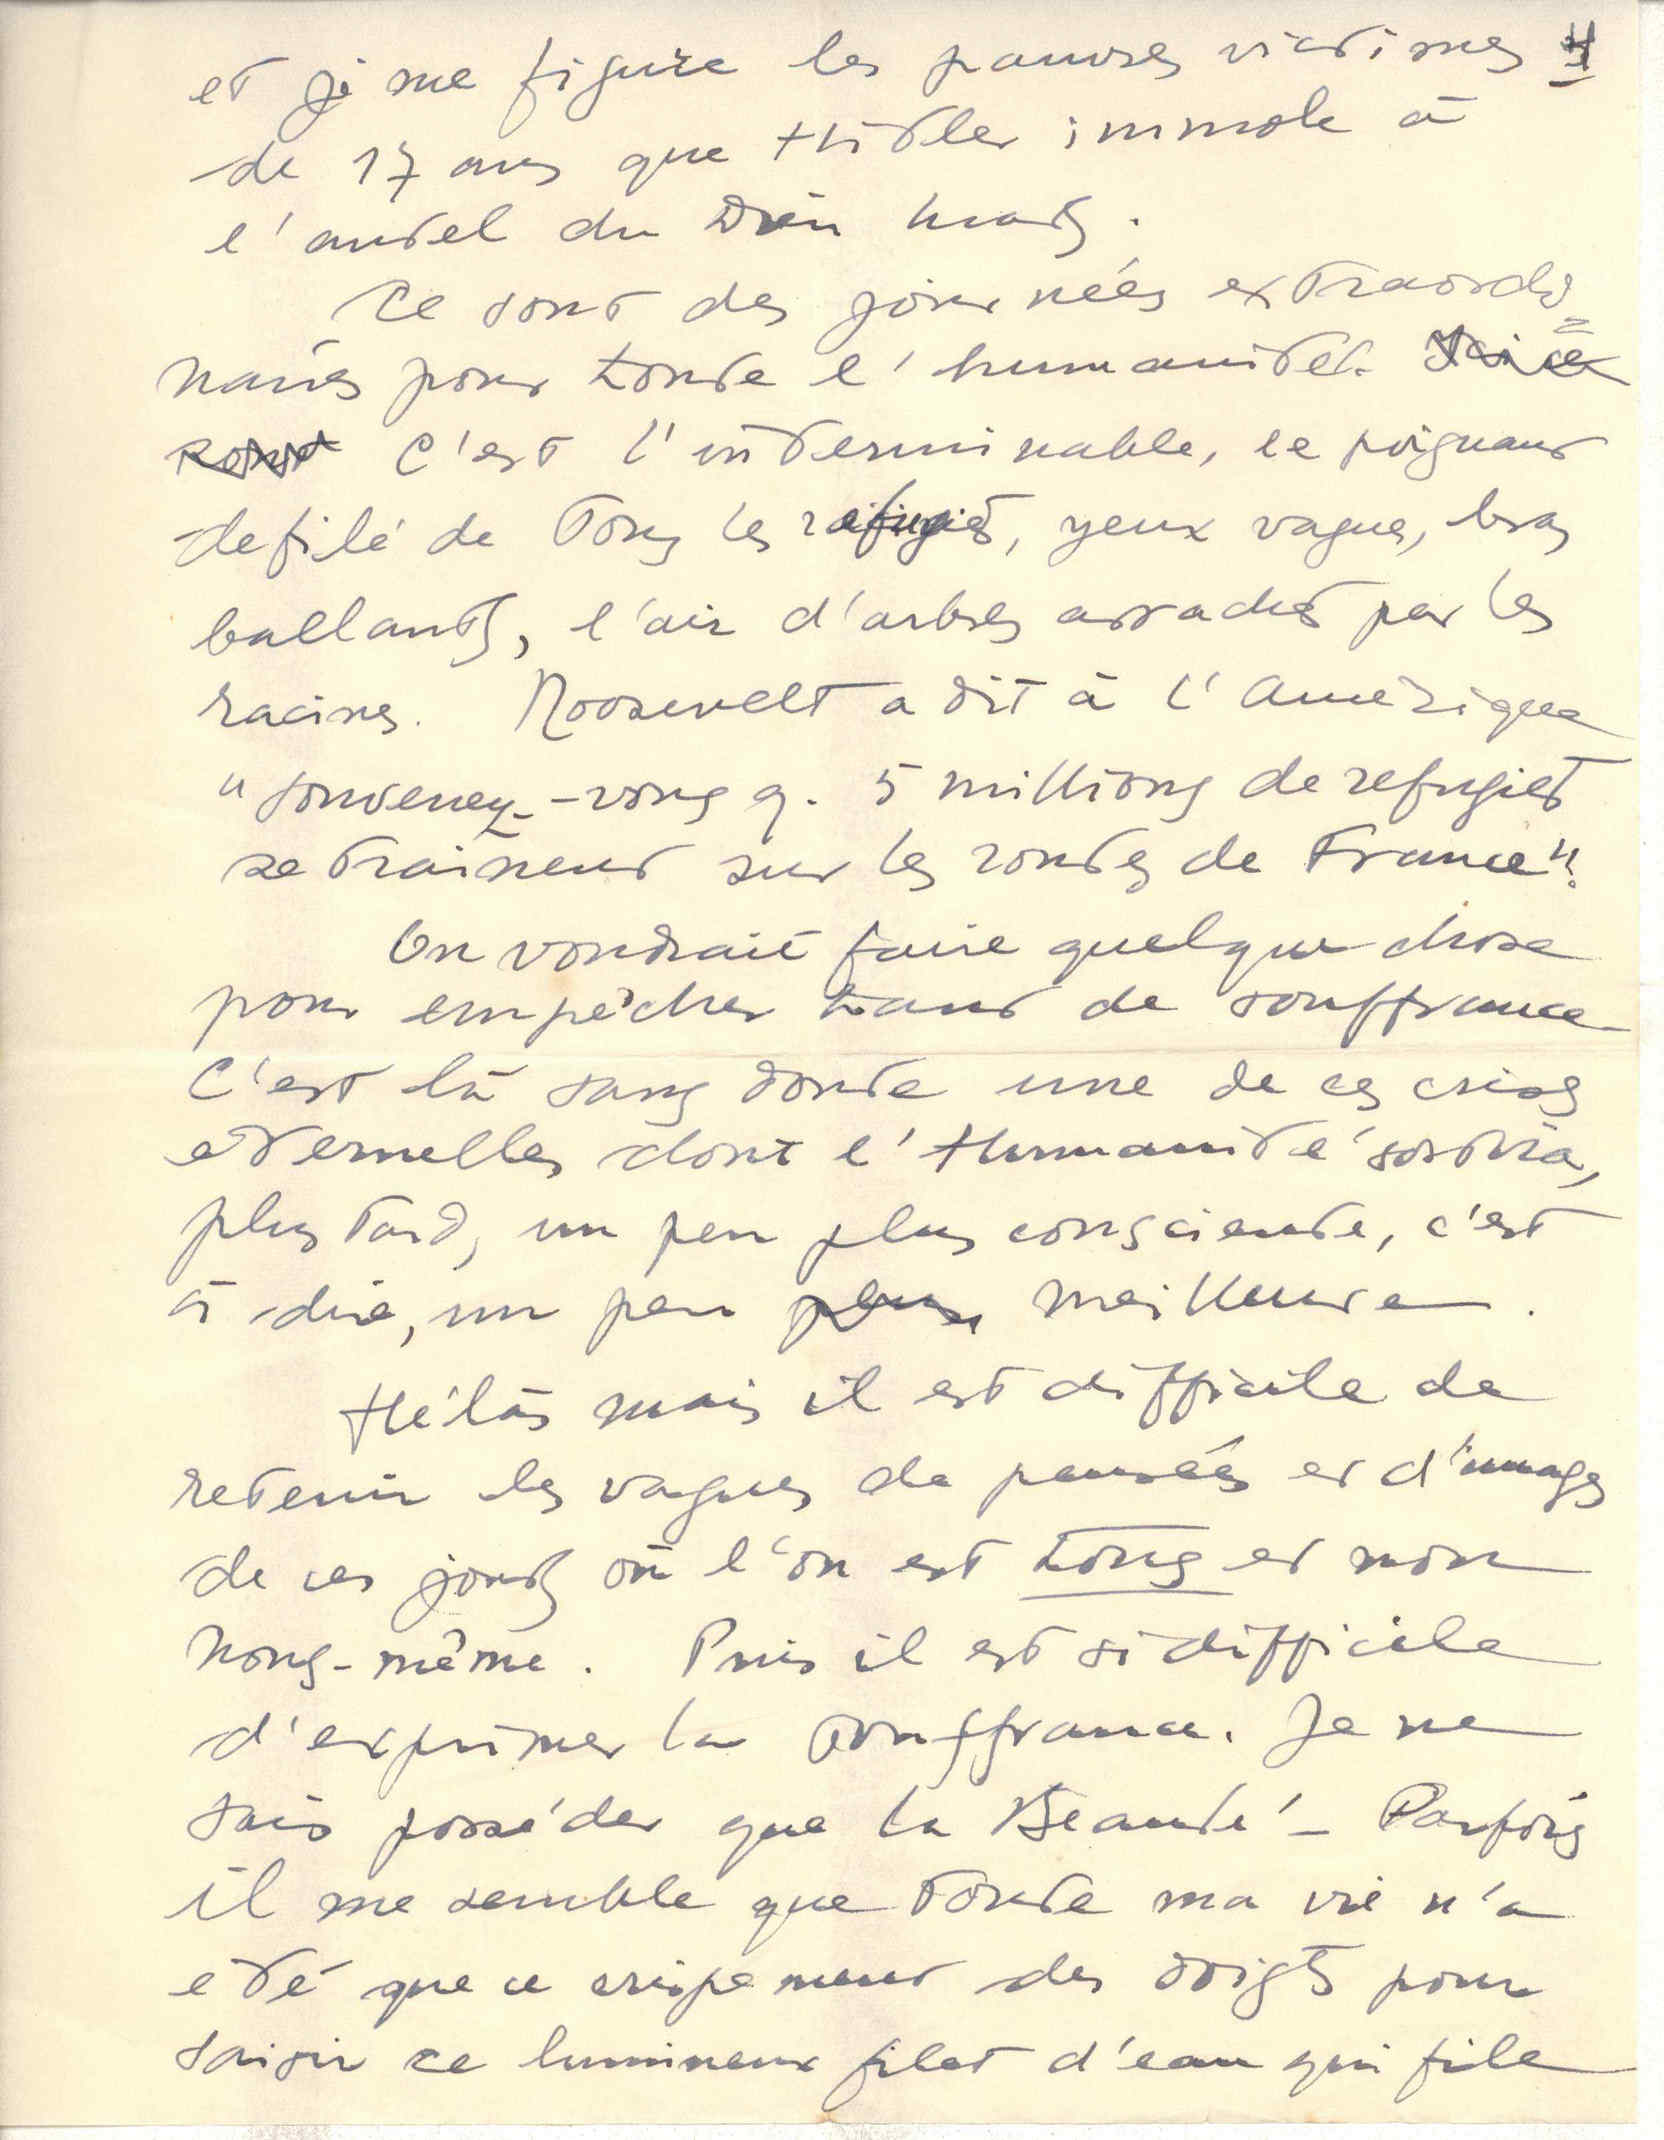 et je me figure les pauvres victimes 4
de 17 ans que Hitler immole à
l'autel du Dieu Mars.
Ce sont des journées extraordi=
naires pour toute l'humanité.
C'est l'interminable, le poignant
defilé de tous les refugiés, yeux vagues, bras
ballants, l'air d'arbres arrachés par les
racines. Roosevelt a dit à l'Amérique
"souvenez-vous q. 5 millions de refugiés
se traînent sur les routes de France".
On voudrait faire quelque chose
pour empêcher tant de souffrance
C'est là sans doute une de ces crises
eternelles dont l'Humanité sortira,
plus tard, un peu plus consciente, c'est
à dire, un peu plus meilleure.
Hélàs mais il est difficile de
retenir les vagues de pensées et d'images
de ces jours où l'on est tous et non
nous-même. Puis il est si difficile
d'exprimer la souffrance. Je ne
sais posséder que la Beauté - Parfois
il me semble que toute ma vie n'a
eté que ce crispement des doigts pour
saisir ce lumineux filet d'eau qui file